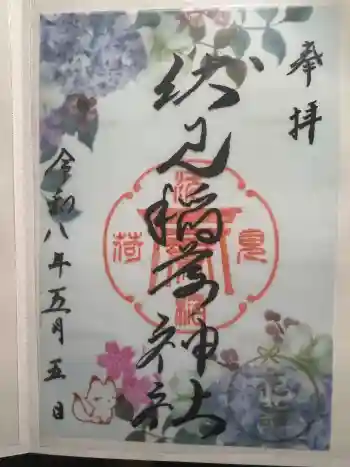 奉拝
伏見稲荷神社
令和八年五月五日